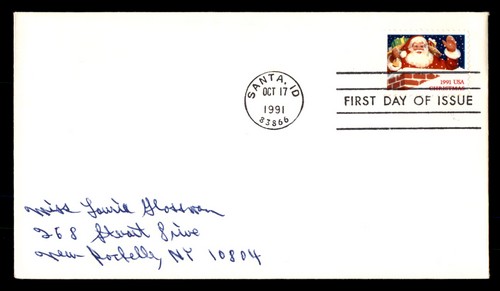 SANTA, ID
OCT 17
1991
83866
1991 USA
CHRISTMAS
FIRST DAY OF ISSUE
Miss Laurie Glassman
268 Stuart Drive
New Rochelle, NY 10804